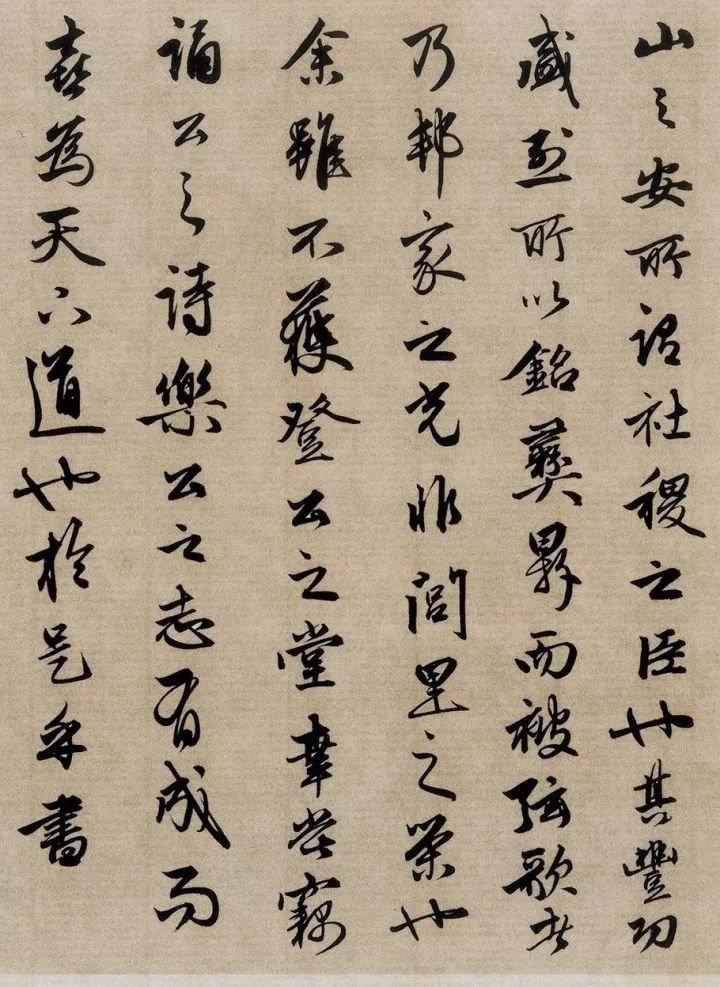 山之安所謂社稷之臣也其豐功
盛烈所以銘彝鼎而被弦歌者
乃邦家之光非閭里之榮也
余雖不獲登公之堂幸嘗竊
誦公之詩樂公之志有成而
喜為天下道也於是乎書